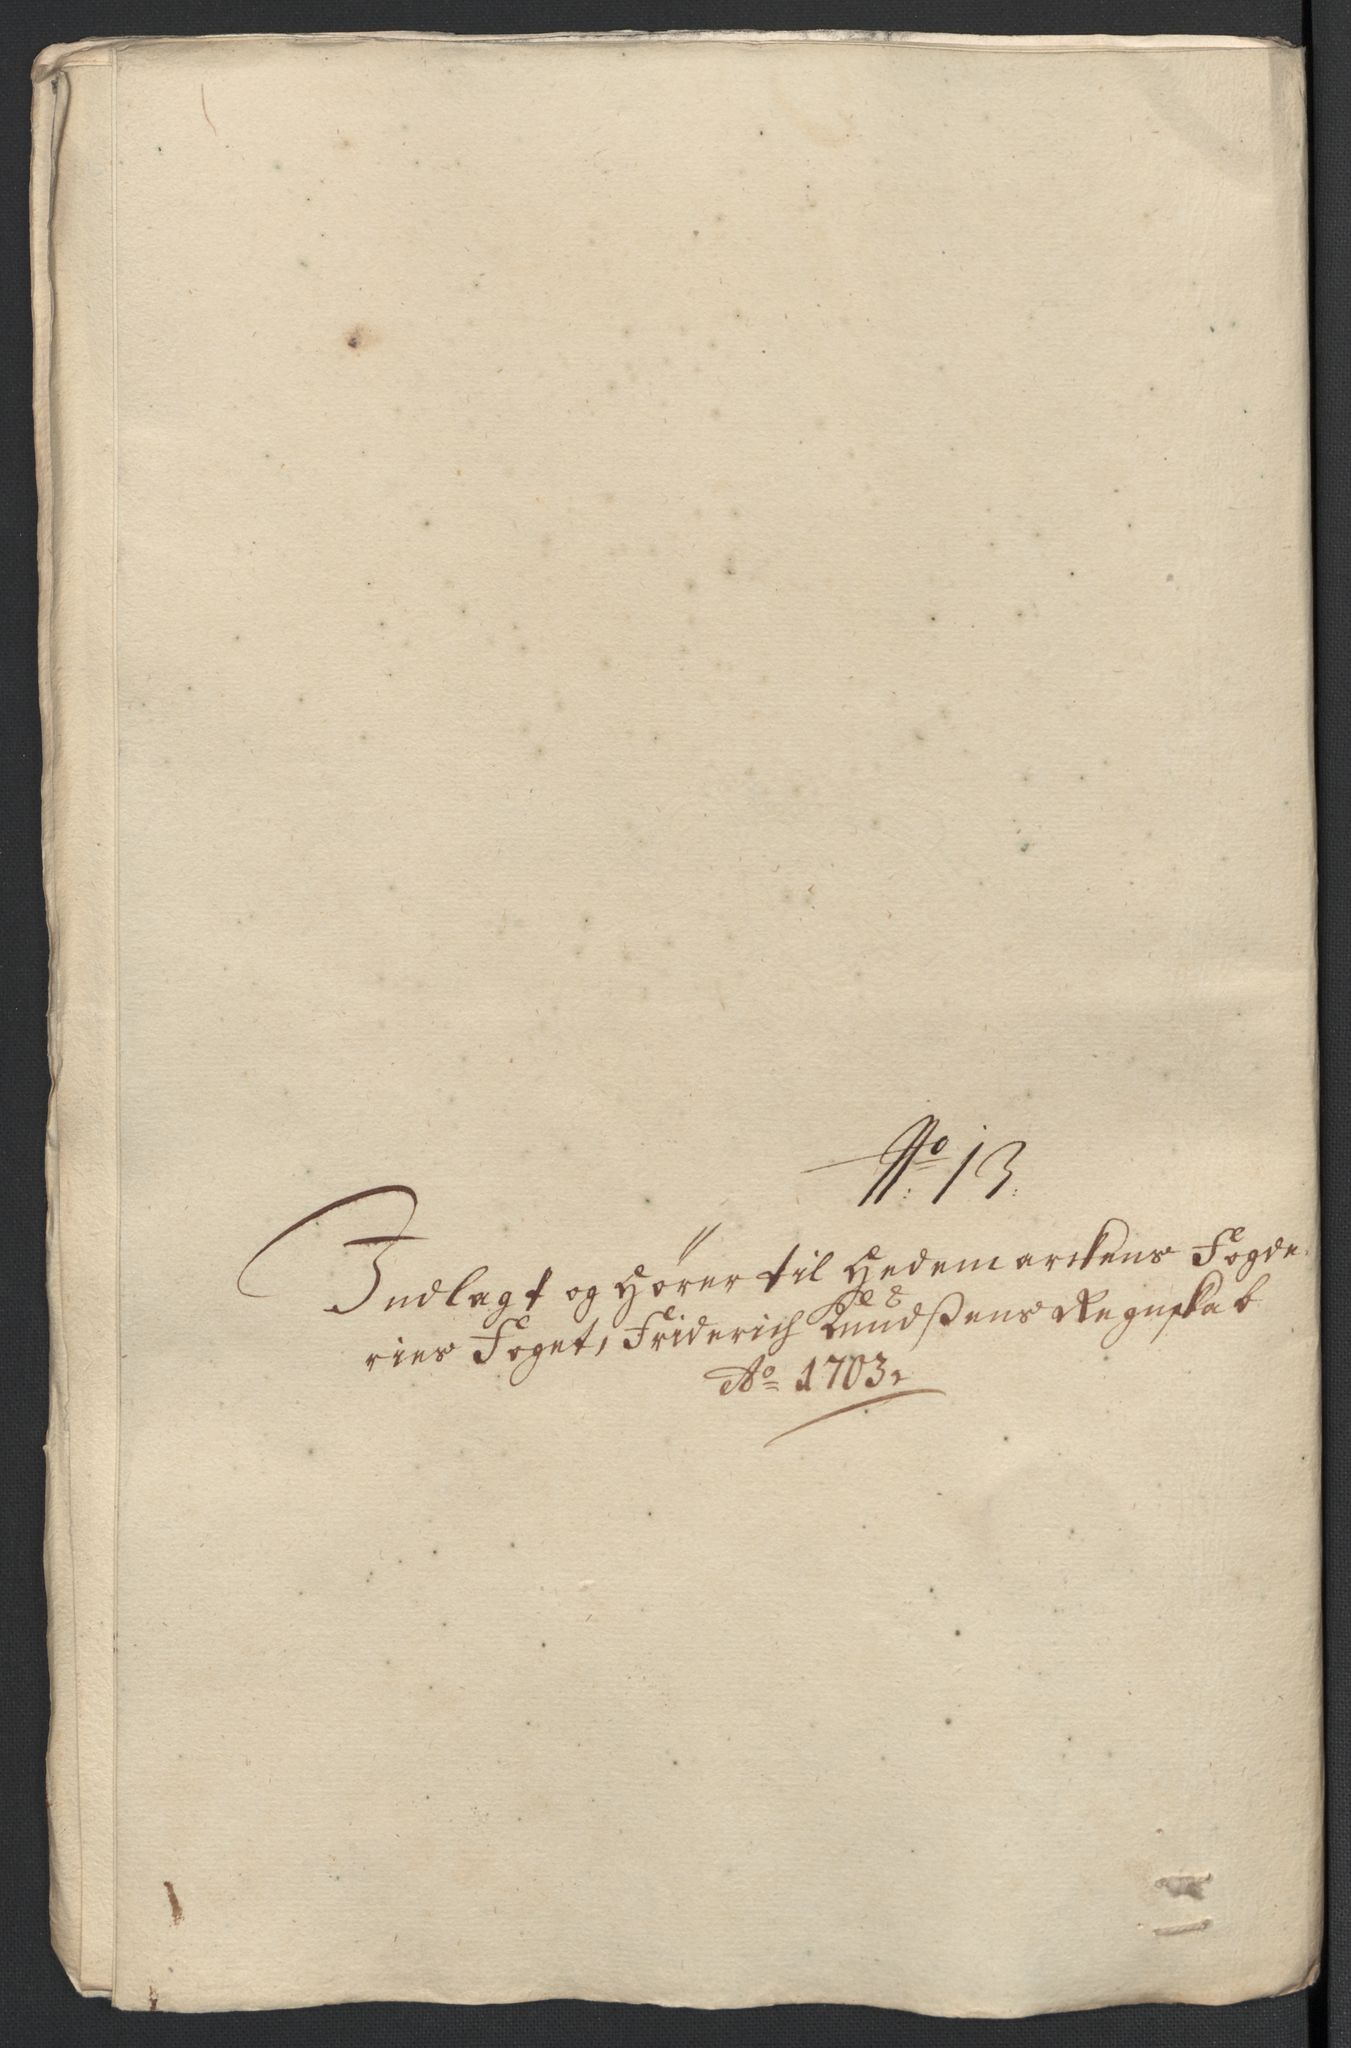 No: 13:
Indlagt og hører til Hedemarckens Fogde-
ries Foget, Friderich Knudßens Regnskab
Ao 1703,